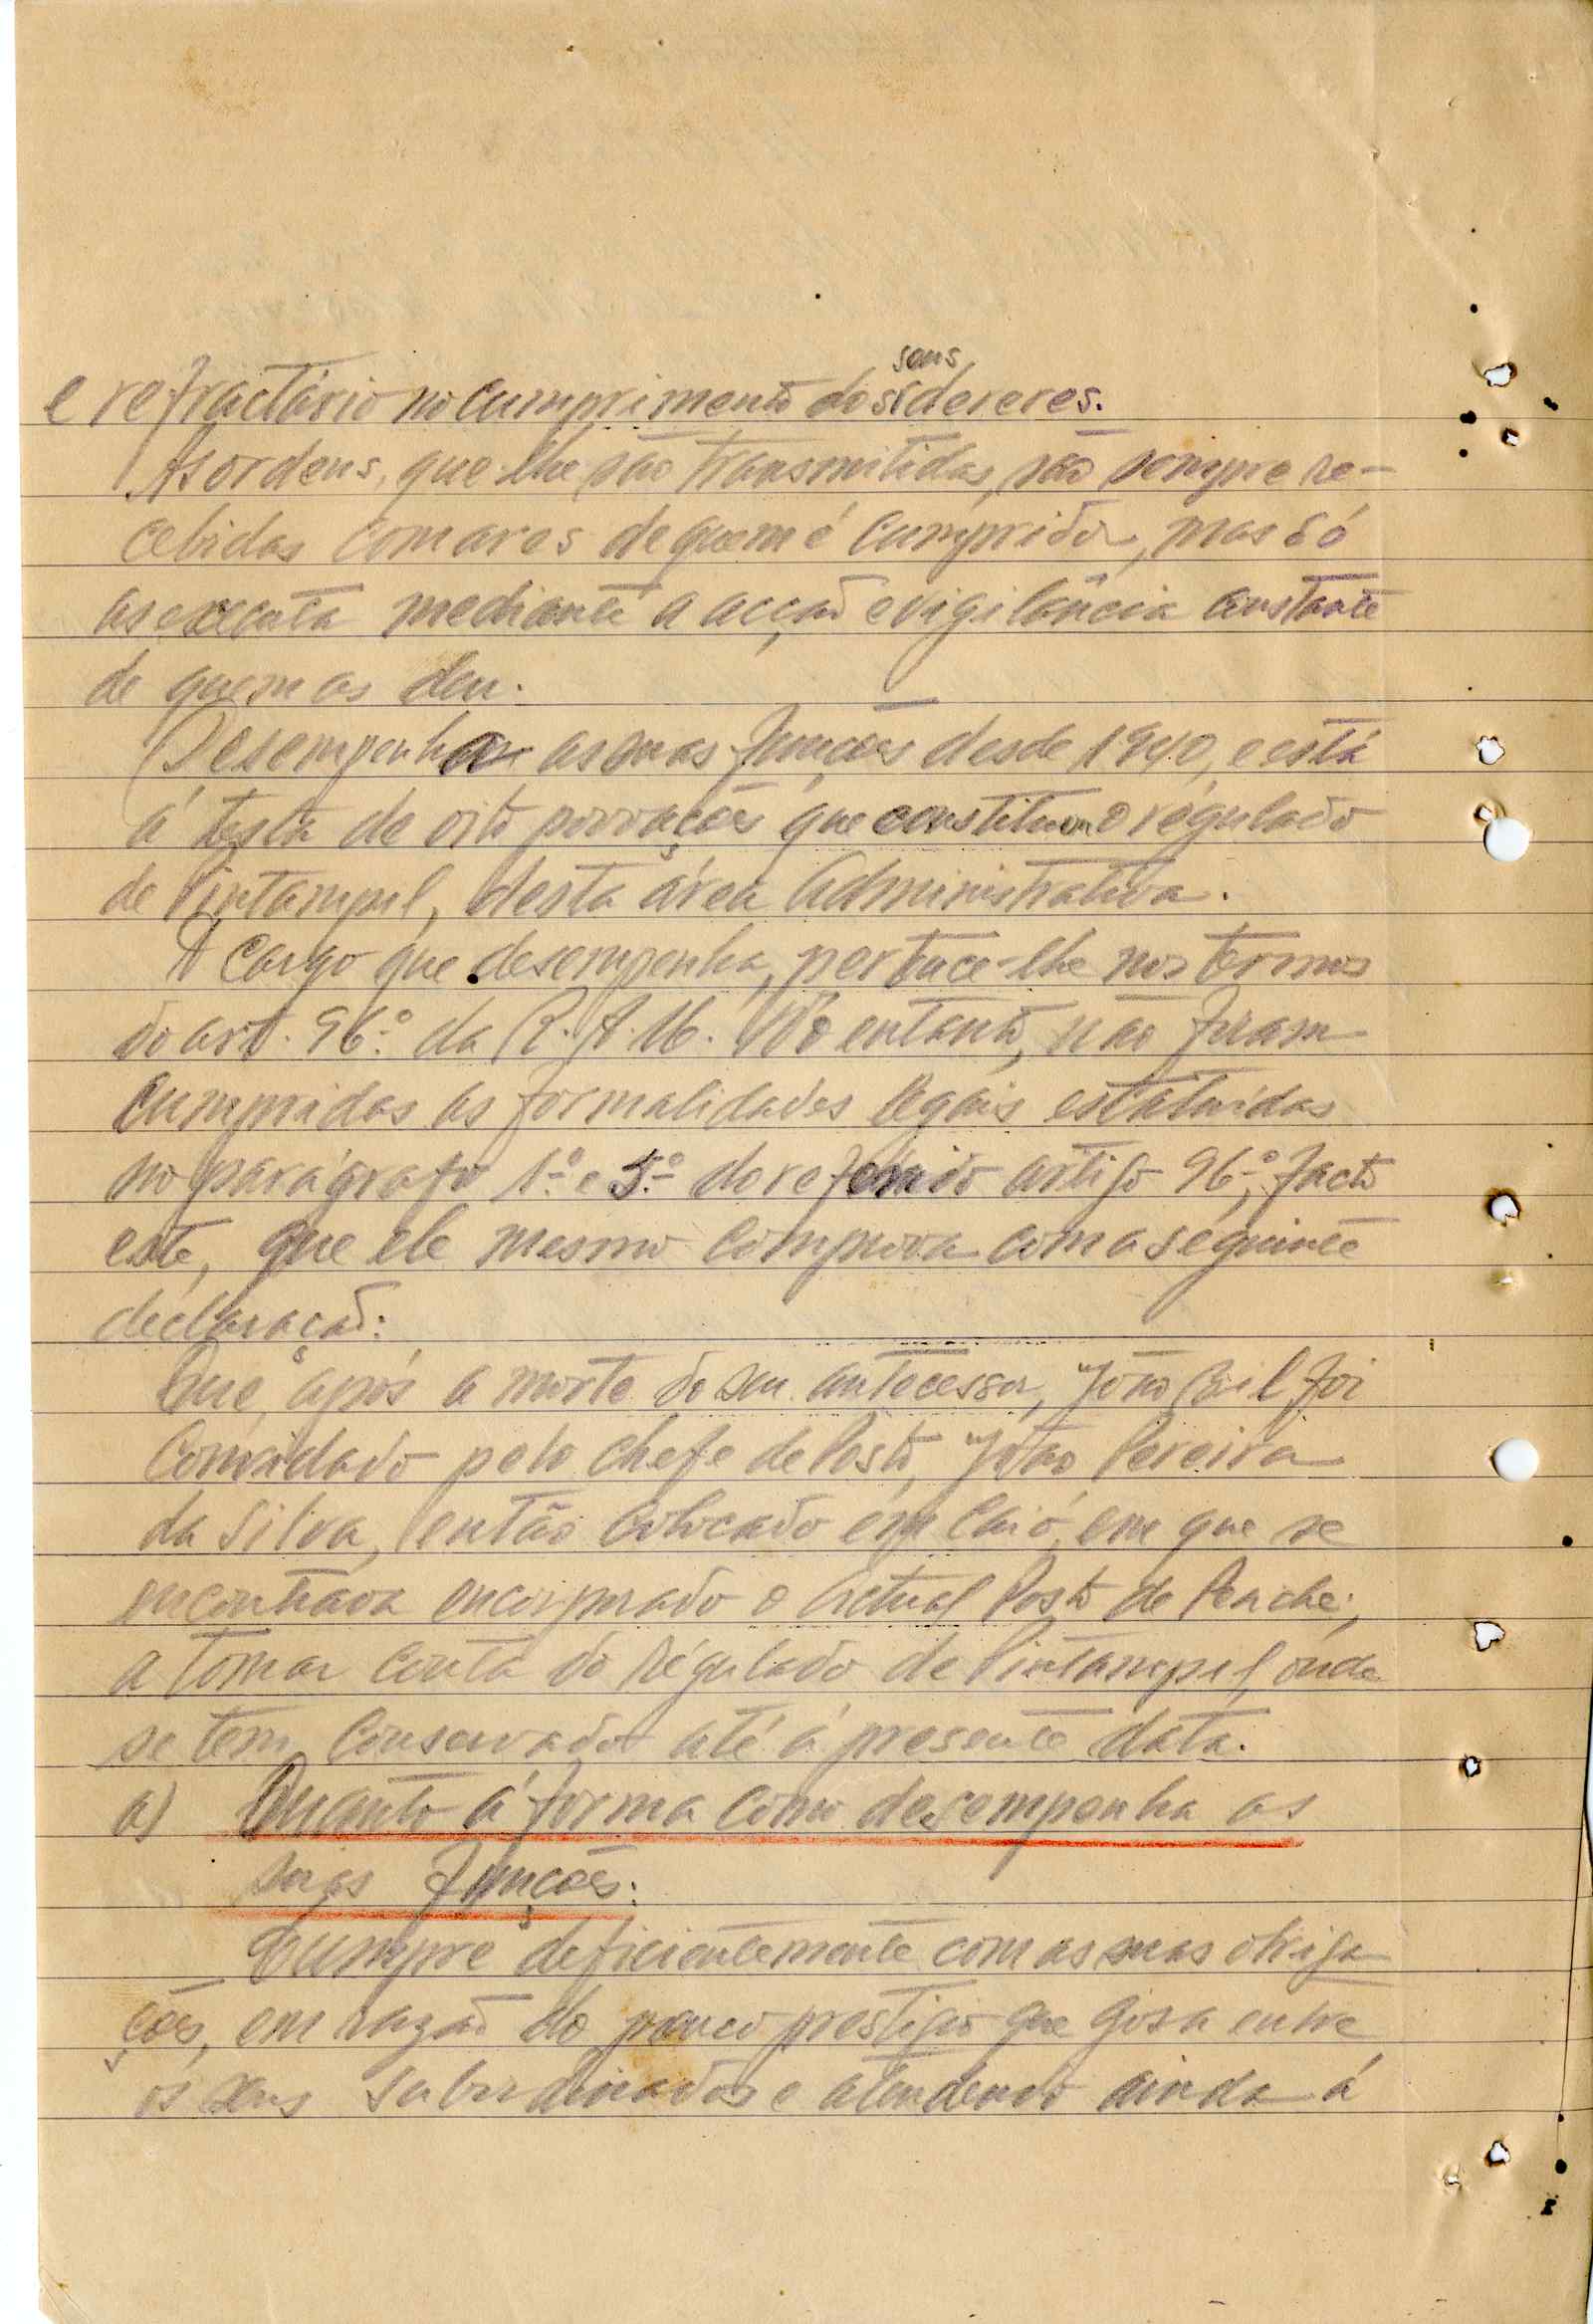 e refractário no cumprimento dos seus deveres.
As ordens, que lhe são transmitidas, são sempre re-
cebidas com ares de quem é cumpridor, mas só
as executa mediante a acção e vigilância constante
de quem as deu.
Desempenha as suas funções desde 1940, e está
á testa de oito povoações que constituem o regulado
de Pintampil, desta área Administrativa.
O cargo que desempenha, pertence-lhe nos termos
do art. 96.º da R.A.U. No entanto, não foram
cumpridas as formalidades legais estatuídas
no parágrafo 1.º e 5.º do referido artigo 96.º, facto
este, que ele mesmo comprova com a seguinte
declaração:
Que, após a morte do seu antecessor, João Bil foi
convidado pelo chefe de Posto, João Pereira
da Silva, então colocado em Caió, em que se
encontrava encorporado o actual Posto de Peache,
a tomar conta do regulado de Pintampil, onde
se tem conservado até á presente data.
a) Quanto á forma como desempenha as
suas funções:
Cumpre deficientemente com as suas obriga
ções, em razão do pouco prestígio que gosa entre
os seus subordinados e atendendo ainda á